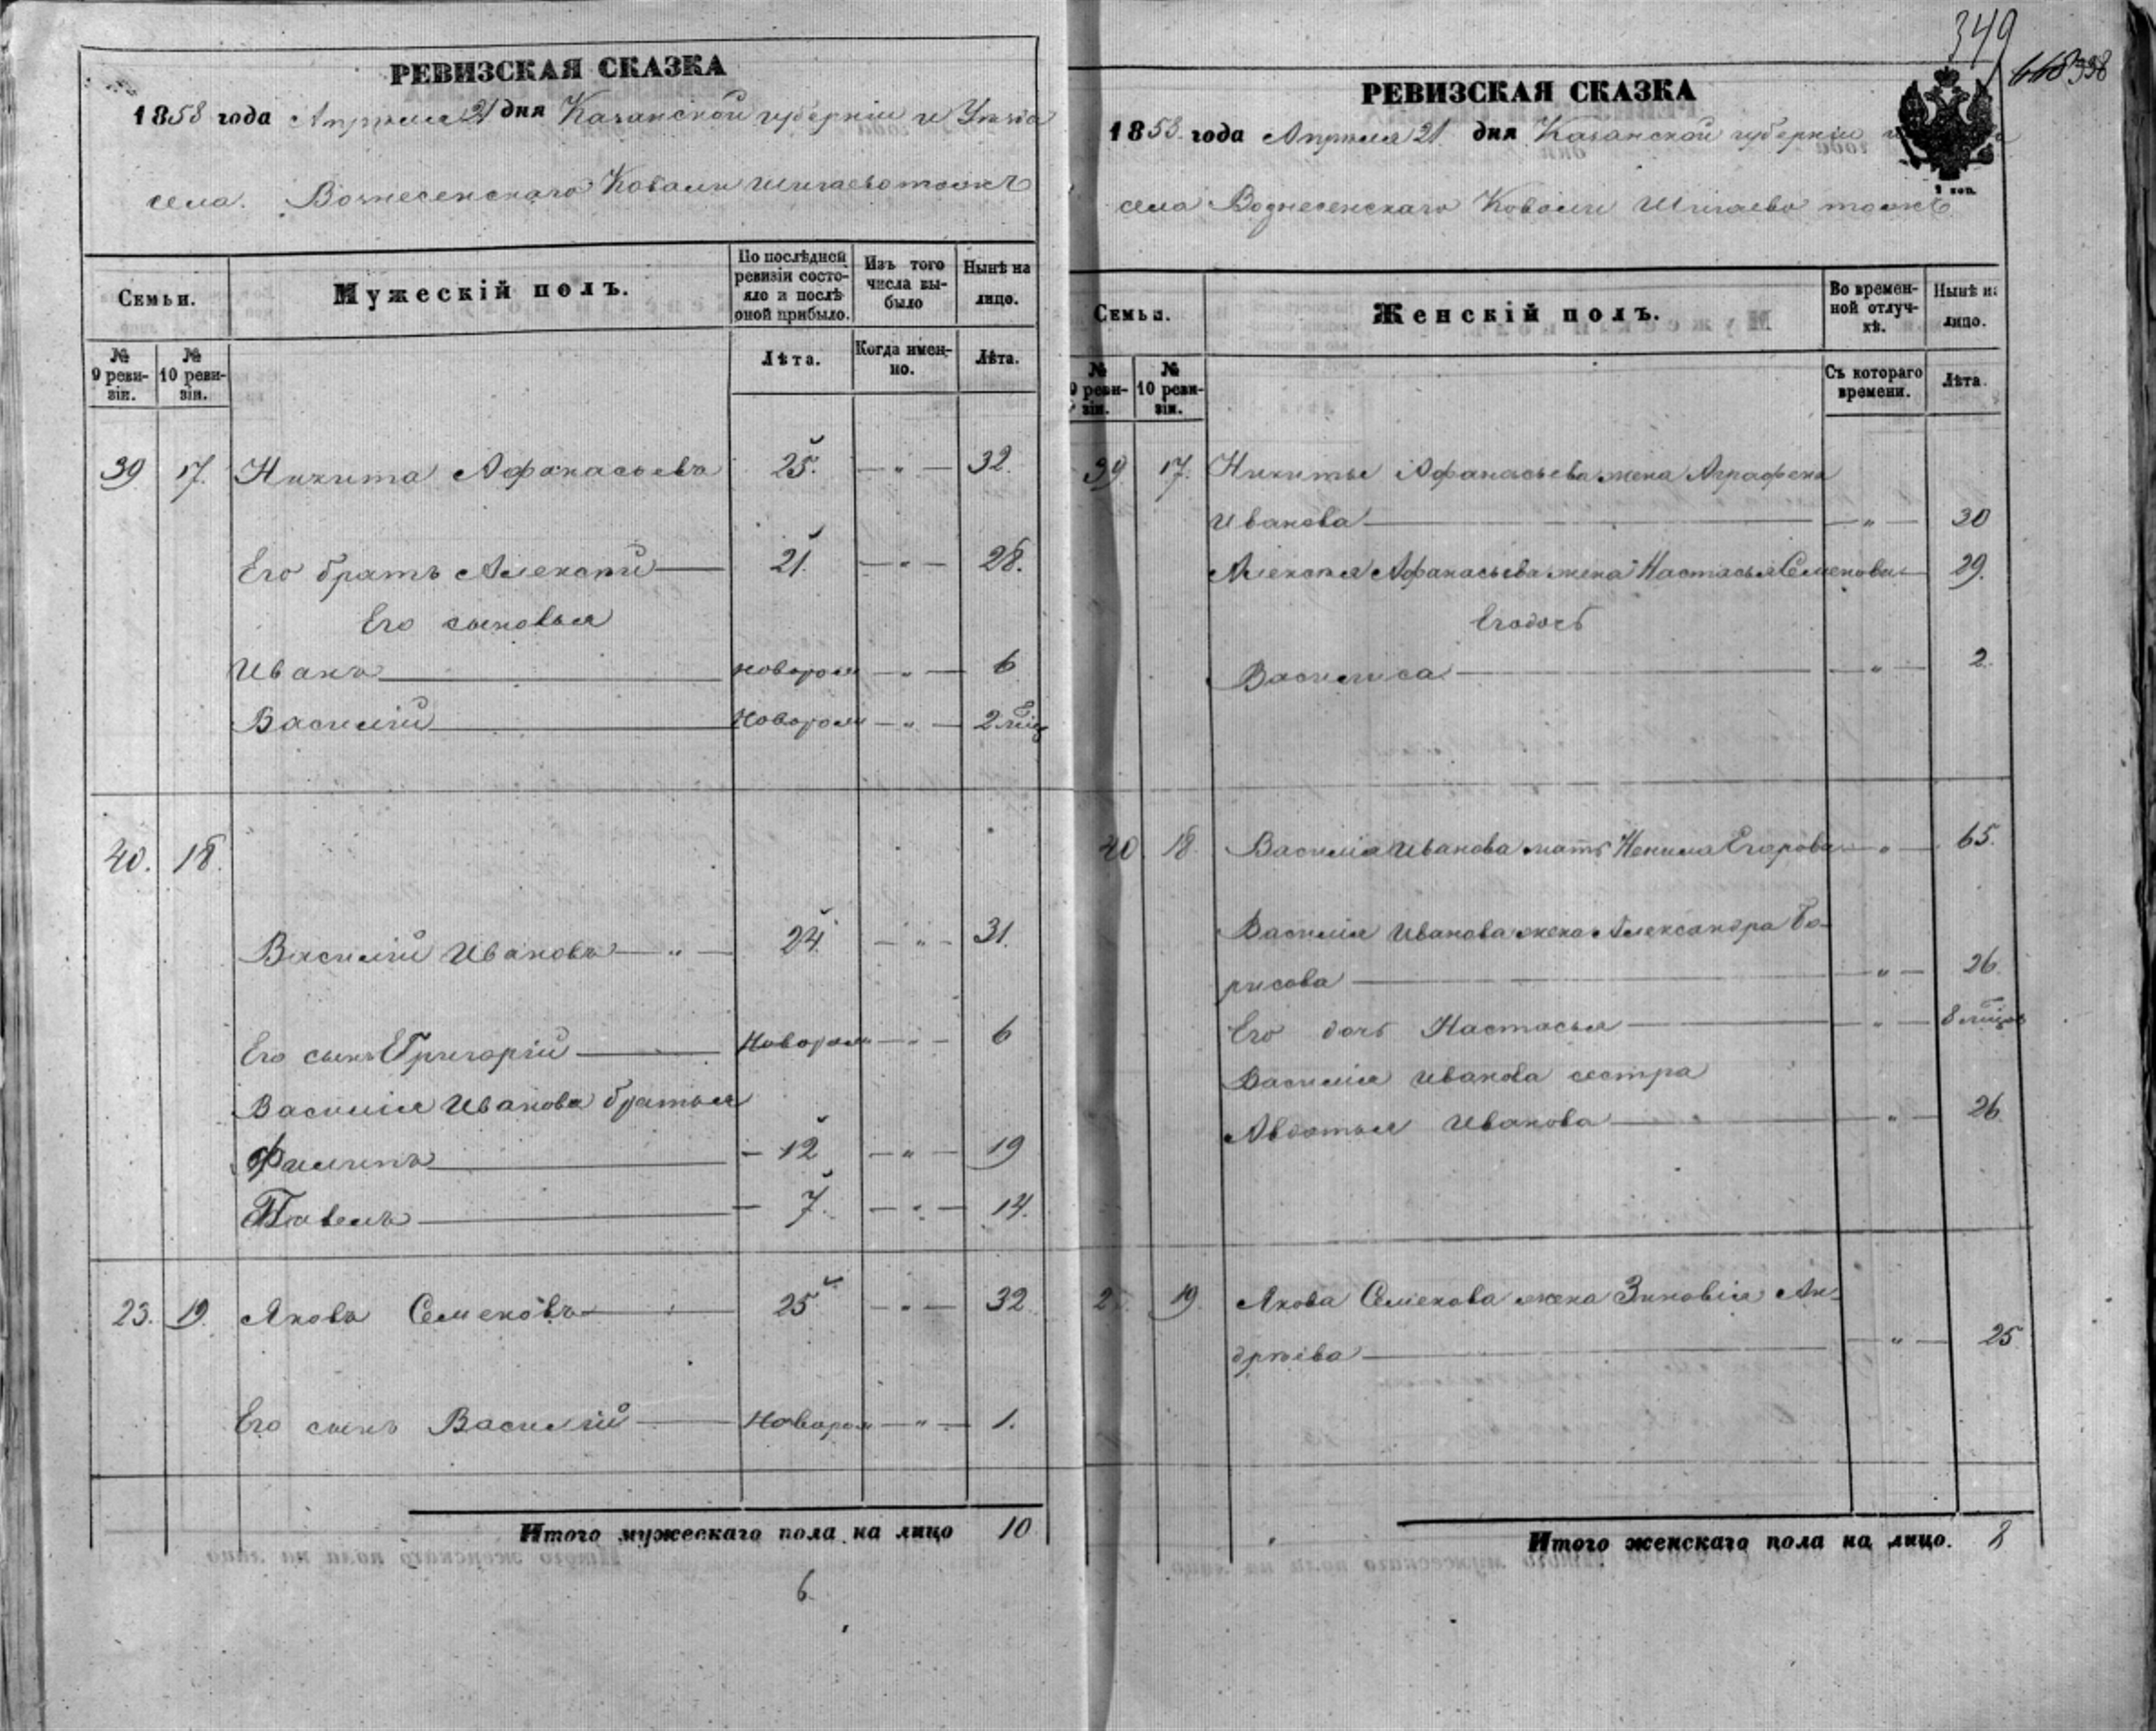 РЕВИЗСКАЯ СКАЗКА
1858 года Апреля 21 дня Казанской губерніи и Уѣзда
села Вознесенскаго Ковали Шигаево тожъ
Семьи.
Мужескій полъ.
По послѣдней ревизіи состояло и послѣ оной прибыло.
Изъ того числа выбыло
Нынѣ на лицо.
№ 9 ревизіи.
№ 10 ревизіи.
Лѣта.
Когда именно.
Лѣта.
39 17. Никита Афанасьевъ 25. — „ — 32.
Его братъ Алексѣй 21. — „ — 28.
Его сыновья
Иванъ новорож — „ — 6
Василій новорож — „ — 2 мѣс
40. 18.
Василій Ивановъ — „ — 24. — „ — 31.
Его сынъ Григорій новорож — „ — 6
Василія Иванова братья
Филипъ — 12 — „ — 19
Павелъ — 7. — „ — 14.
23. 19. Яковъ Семеновъ 25 — „ — 32.
Его сынъ Василій новорож — „ — 1.
Итого мужескаго пола на лицо 10
6
349
338
РЕВИЗСКАЯ СКАЗКА
1858 года Апреля 21 дня Казанской губерніи
села Вознесенскаго Ковали Шигаево тожъ
Семьи.
Женскій полъ.
Во временной отлучкѣ.
Нынѣ на лицо.
№ 9 ревизіи.
№ 10 ревизіи.
Съ котораго времени.
Лѣта.
39 17. Никиты Афанасьева жена Аграфена
Иванова — „ — 30
Алексѣя Афанасьева жена Настасья Семенова 29.
Его дочь
Василиса — „ — 2.
40 18. Василія Иванова мать Егорова — „ — 65.
Василія Иванова жена Александра Бо-
рисова — „ — 26.
Его дочь Настасья „ 8 мѣсяц
Василія Иванова сестра
Авдотья Иванова — „ — 26
19 Якова Семенова жена Зиновія Ан-
дрѣева — „ — 25
Итого женскаго пола на лицо. 8